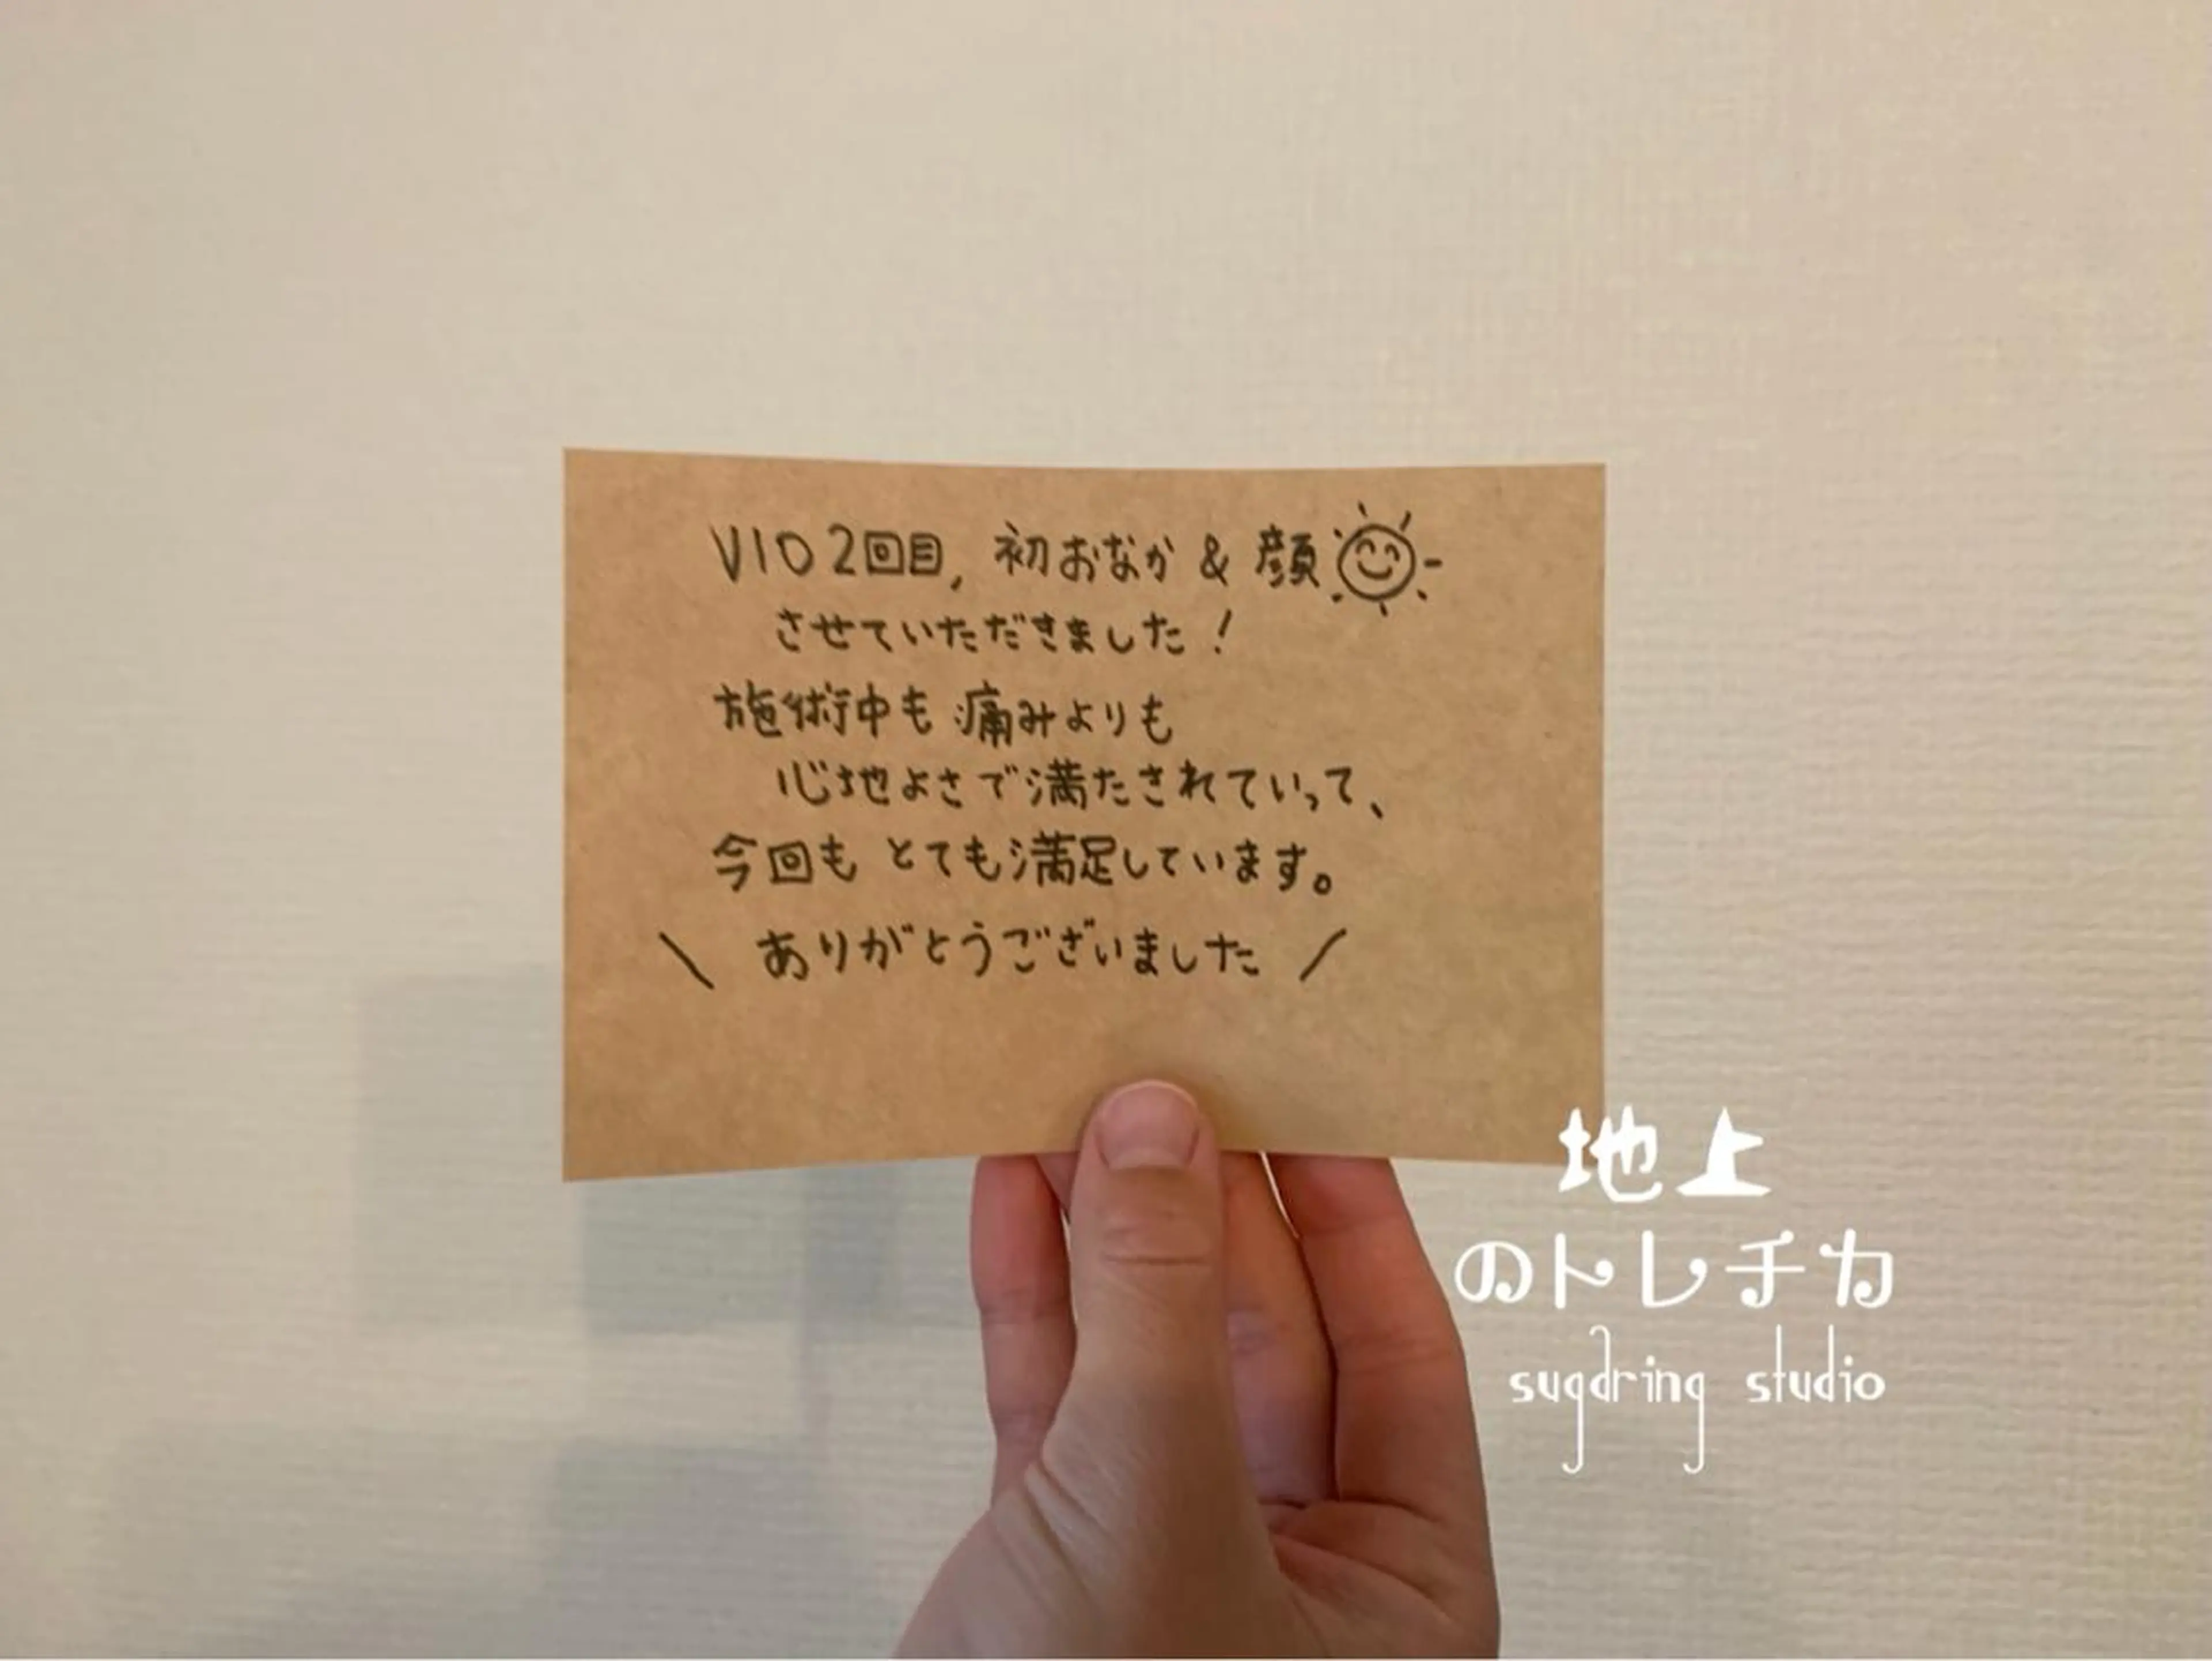 VIO 2回目, 初おなか & 顔
させていただきました！
施術中も 痛みよりも
心地よさで満たされていって、
今回も とても満足しています。
\ ありがとうございました /
地上
のトレチカ
sugaring studio